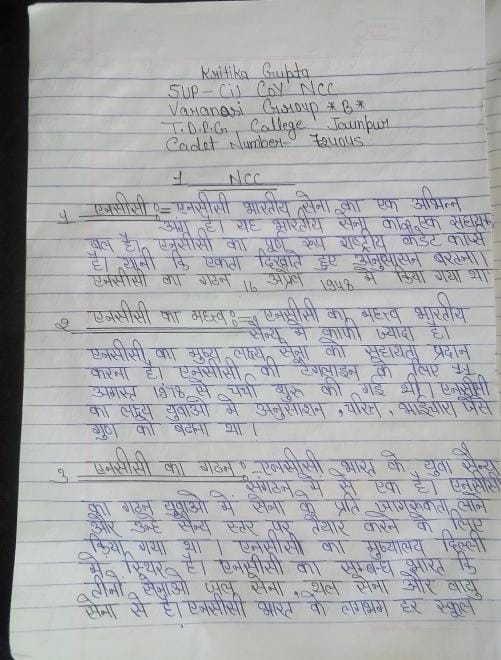 Kritika Gupta
5UP-(i) CoY NCC
Varanasi Group *B*
T.D.P.G College Jaunpur
Cadet Number- 724045
1 NCC
1 एनसीसी := एनसीसी भारतीय सेना का एक अभिन्न
अंग है। यह भारतीय सेना का एक सहायक
बल है। एनसीसी का पूर्ण रूप राष्ट्रीय कैडेट कार्प्स
है। यानी कि एकता दिखाते हुए अनुशासन बरतना।
एनसीसी का गठन 16 अप्रैल 1948 में किया गया था
2 एनसीसी का महत्व := एनसीसी का महत्व भारतीय
सैन्य में काफी ज्यादा है।
एनसीसी का मुख्य लक्ष्य सेना को सहायता प्रदान
करना है। एनसीसी की टैगलाइन के लिए 11
अगस्त 1978 से चर्चा शुरू की गई थी। एनसीसी
का लक्ष्य युवाओं में अनुशासन, चरित्र, भाईचारा जैसे
गुण को बढ़ना था।
3 एनसीसी का गठन := एनसीसी भारत के युवा सैन्य
संगठन में से एक है। एनसीसी
का गठन युवाओं में सेना के प्रति जागरूकता लाने
और उन्हें सैन्य स्तर पर तैयार करने के लिए
किया गया था। एनसीसी का मुख्यालय दिल्ली
में स्थिर है। एनसीसी का सम्बन्ध भारत कि
तीनों सेनाओं जल सेना, थल सेना और वायु
सेना से है। एनसीसी भारत के लगभग हर स्कूल